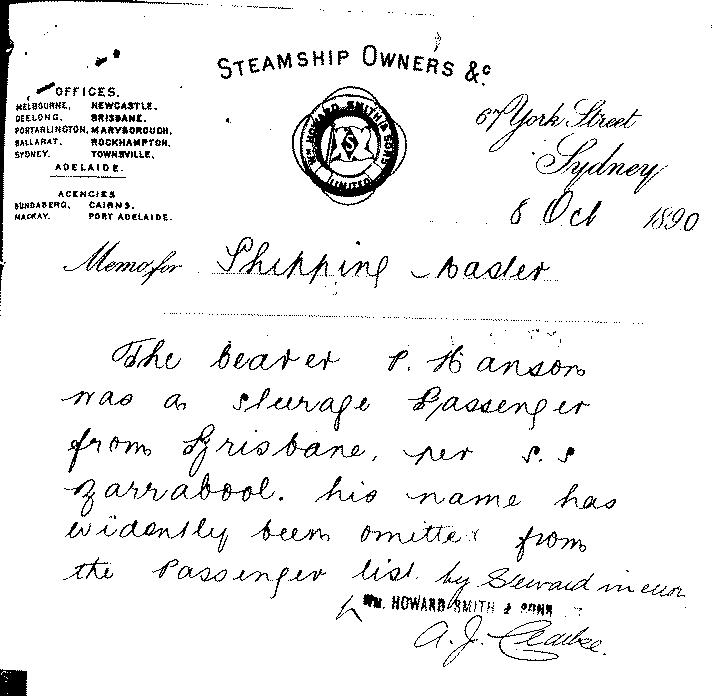 STEAMSHIP OWNERS &c
OFFICES.
MELBOURNE, NEWCASTLE.
GEELONG, BRISBANE.
PORTARLINGTON, MARYBOROUGH,
BALLARAT, ROCKHAMPTON.
SYDNEY. TOWNSVILLE.
ADELAIDE.
AGENCIES
BUNDABERG, CAIRNS.
MACKAY. PORT ADELAIDE.
WM HOWARD SMITH & SONS
LIMITED
S
67 York Street
Sydney
8 Oct 1890
Memo for Shipping Master
The bearer P. Hanson
was a steerage Passenger
from Brisbane, per S.S
Barrabool. his name has
evidently been omitted from
the Passenger list by Steward in error
WM. HOWARD SMITH & SONS
A. J. Clarke.